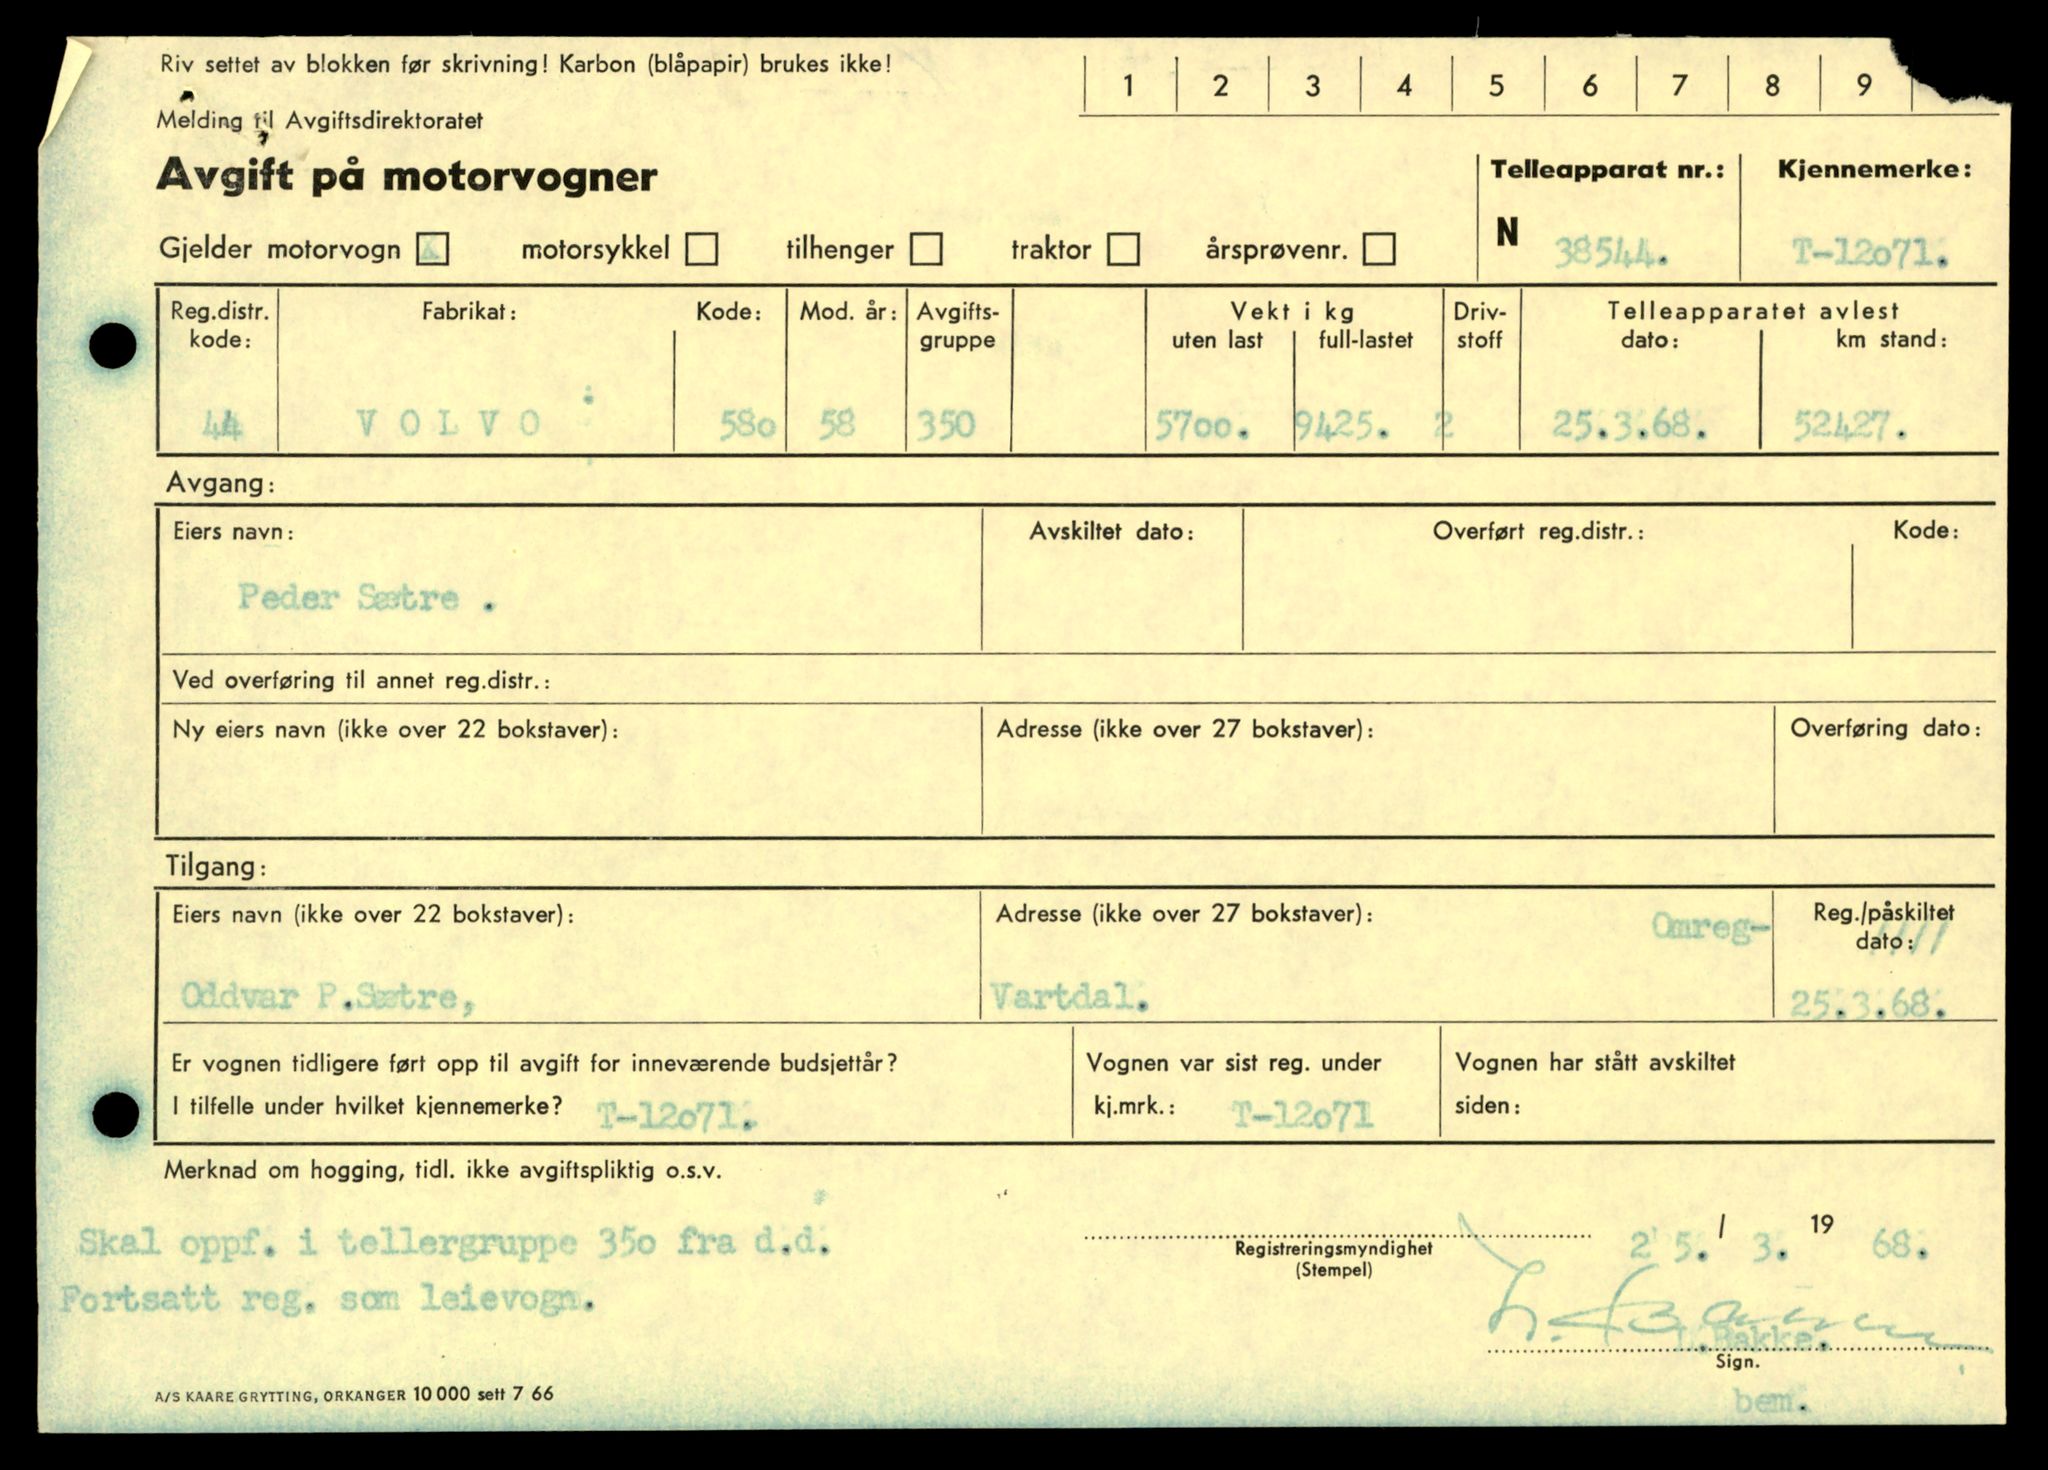 Riv settet av blokken før skrivning! Karbon (blåpapir) brukes ikke!
1 2 3 4 5 6 7 8 9
Melding til Avgiftsdirektoratet
Avgift på motorvogner
Telleapparat nr.: Kjennemerke:
Gjelder motorvogn x motorsykkel tilhenger traktor årsprøvenr. N 38544. T-12o71.
Reg.distr. Fabrikat: Kode: Mod. år: Avgifts- Vekt i kg Driv- Telleapparatet avlest
kode: gruppe uten last full-lastet stoff dato: km stand:
44 VOLVO 58o 58 350 57oo. 9425. 2 25.3.68. 52427.
Avgang:
Eiers navn: Avskiltet dato: Overført reg.distr.: Kode:
Peder Sætre .
Ved overføring til annet reg.distr.:
Ny eiers navn (ikke over 22 bokstaver): Adresse (ikke over 27 bokstaver): Overføring dato:
Tilgang:
Eiers navn (ikke over 22 bokstaver): Adresse (ikke over 27 bokstaver): Omreg- Reg./påskiltet
dato: ////
Oddvar P.Sætre, Vartdal. 25.3.68.
Er vognen tidligere ført opp til avgift for inneværende budsjettår? Vognen var sist reg. under Vognen har stått avskiltet
I tilfelle under hvilket kjennemerke? T-12o71. kj.mrk.: T-12o71 siden:
Merknad om hogging, tidl. ikke avgiftspliktig o.s.v.
Skal oppf. i tellergruppe 35o fra d.d. 25. / 3. 19 68.
Registreringsmyndighet
(Stempel)
Fortsatt reg. som leievogn.
L.Bakke.
Sign.
A/S KAARE GRYTTING, ORKANGER 10 000 sett 7 66
bem.